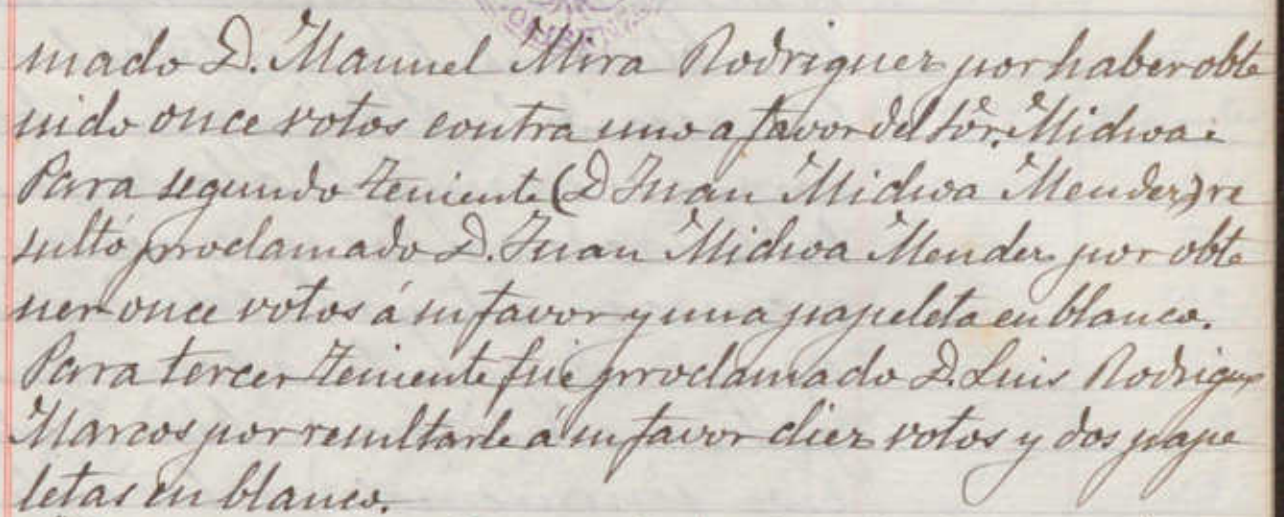 mado D. Manuel Mira Rodriguez por haber obte
nido once votos contra uno a favor del Sor. Midwoa.
Para segundo teniente (D Juan Midwoa Mendez) re
sultó proclamado D. Juan Midwoa Mendez por obte
ner once votos á su favor y una papeleta en blanco.
Para tercer teniente fué proclamado D. Luis Rodriguez
Marcos por resultarle á su favor diez votos y dos pape
letas en blanco.